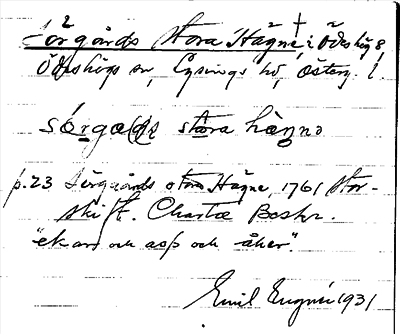 Sörgårds stora Hägne, i Ödeshögs
Ödeshögs sn, Lysings hd, Österg. l.
sörgaḷḍs stora häŋnə
p.23 Sörgaards stora Hägne, 1761 Stor-
skift. Chartæ Beskr.
"ek aro och asp och åker".
Emil 1931